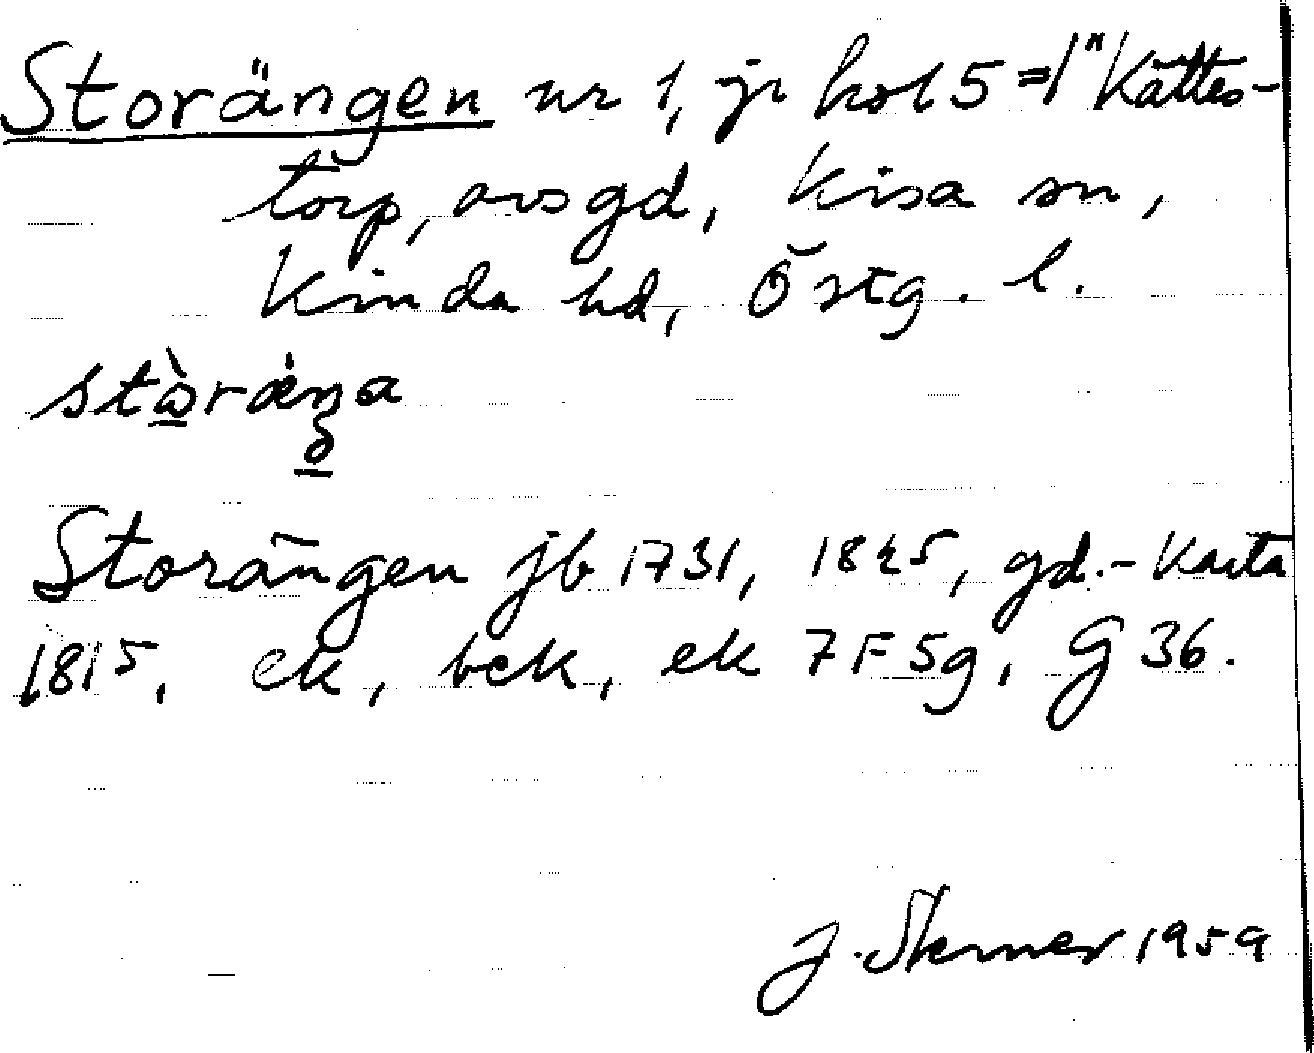 Storängen nr 1, jr kol 5 = 1" Kättes-
torp, avsgd, Kisa sn,
Kinda hd, Östg. l.
stòrǽŋa
Storängen jb 1731, 1825, gd.- Karta
1815, ek, bek, ek 7F5g, G 36.
J. Sterner 1959